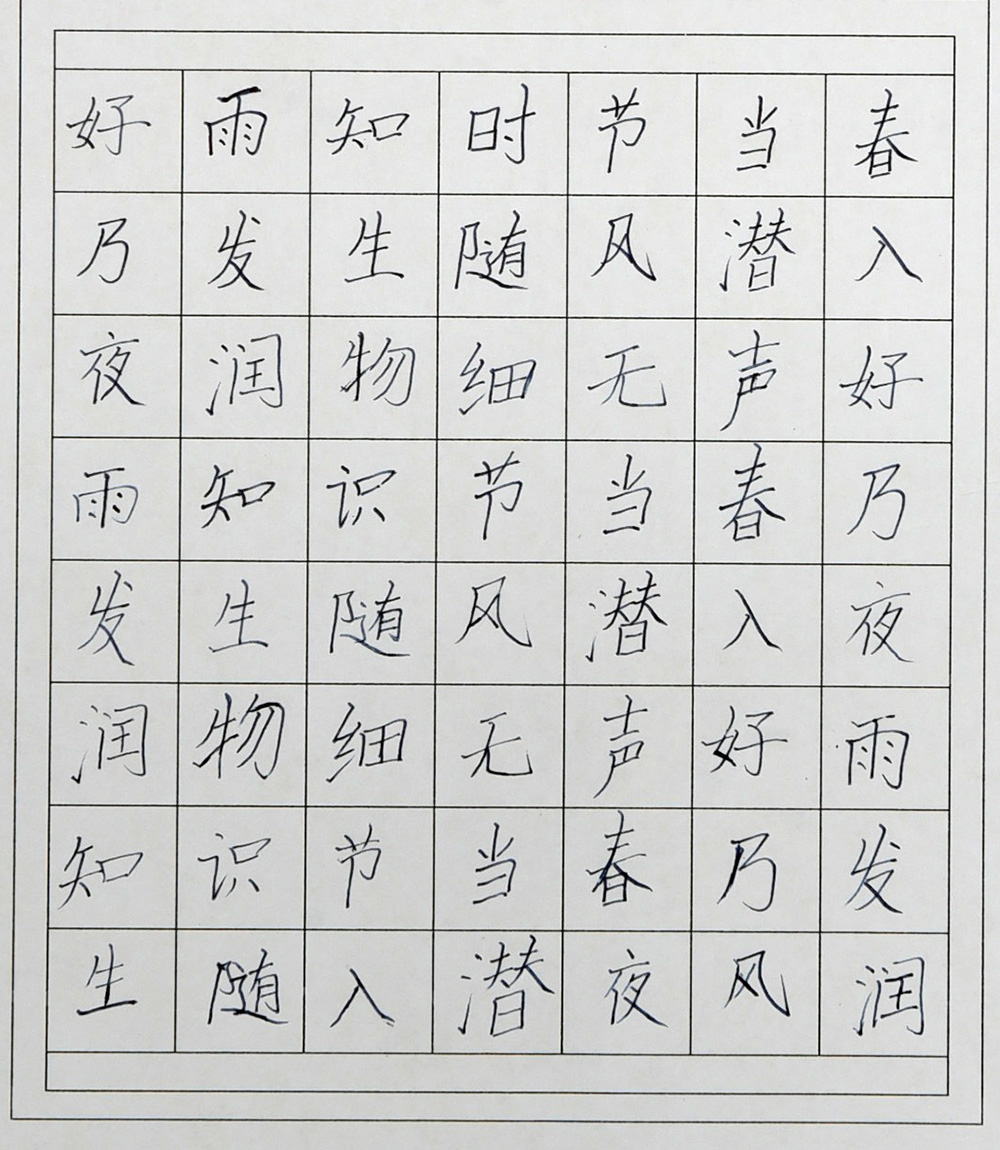 好雨知时节当春
乃发生随风潜入
夜润物细无声好
雨知识节当春乃
发生随风潜入夜
润物细无声好雨
知识节当春乃发
生随入潜夜风润